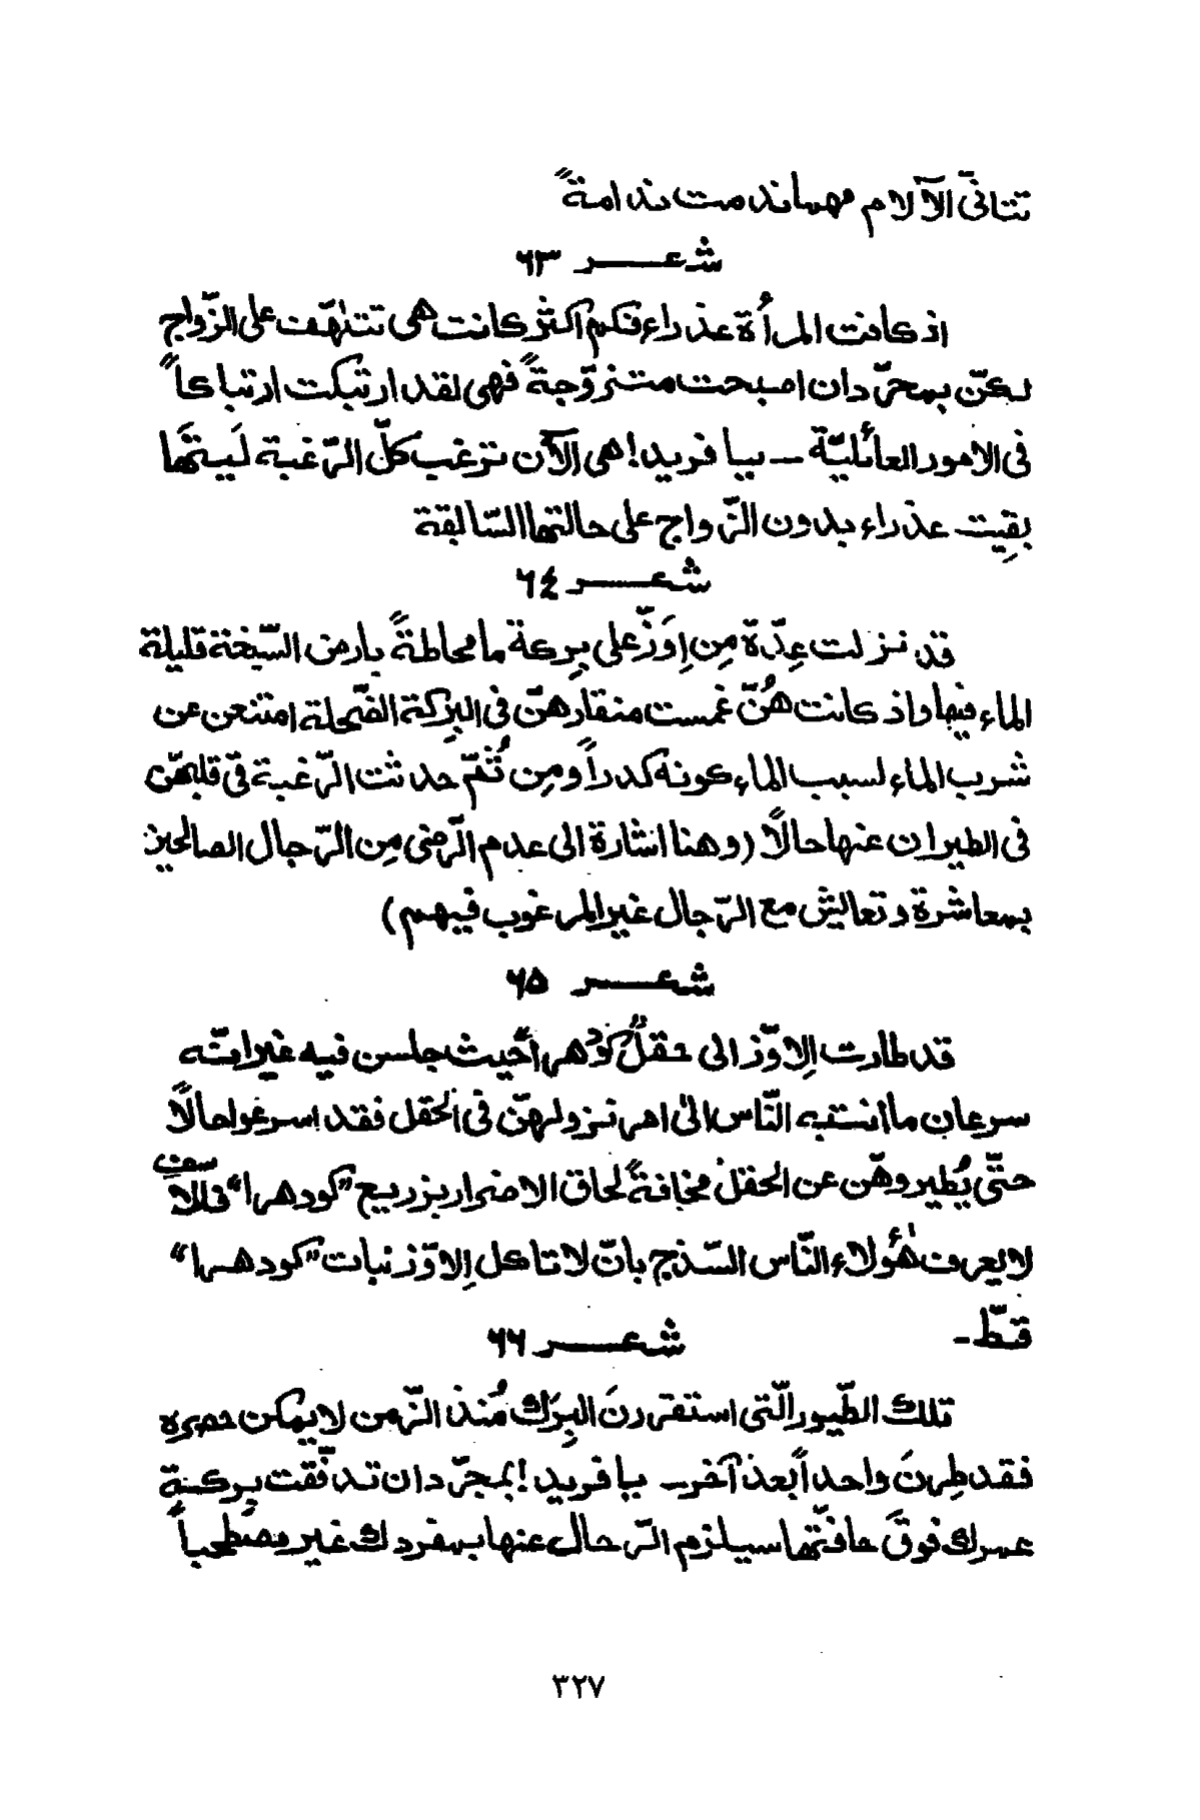 تتانیّ الآلام مهماندمت ندامةً
شعر ٦٣
اذ كانت المرأة عذراء فكم اكثر كانت هی تتلهّف علی الزّواج
لكنّ بمجرّدان اصبحت متزوّجةً فهی لقد ارتبكت ارتباكاً
فی الامور العائليّة ــ يا فريد! هی الآن ترغب كلّ الرّغبة لَيتَها
بقِيت عذراء بدون الزّواج علی حالتها السّابقة
شعر ٦٤
قد نزلت عِدّة مِن اِوَزّ علی بِركة ما محاطةً بارض السّبخة قليلة
الماء فيها واذ كانت هُنّ غمست منقارهنّ فی البِركة الضّحلة امتنعن عن
شرب الماء لسبب الماء كونه كدراً ومِن ثُمّ حدثت الرّغبة فی قلبهنّ
فی الطيران عنها حالاً (وهنا اشارة الی عدم الرّضی مِن الرّجال الصالحين
بمعاشرة و تعايش مع الرّجال غير المرغوب فيهم)
شعر ٦٥
قد طارت اِلاوّز الی حقل كودهرا حيث جلسن فيه غير انّه
سرعان ما انتبه النّاس الی امر نزولهنّ فی الحقل فقد اسرعوا حالاً
حتّی يُطيروهنّ عن الحقل مخافةً لحاق الاضرار بزريع "كودهرا" فللاسف
لا يعرف هٰؤلاء النّاس السّذج بانّ لا تاكل اِلاوّز نبات "كودهرا"
قطّ ـ
شعر ٦٦
تلك الطّيور الّتی استقررنَ البِرَك مُنذ الزّمن لا يمكن حصره
فقد طِرنَ واحداً بعد آخر ــ يا فريد! بمجرّدان تدفّقت بِركة
عمرك فوقَ حافّتها سيلزم الرّحال عنها بمفردك غير مصطحباً
٣٢٧